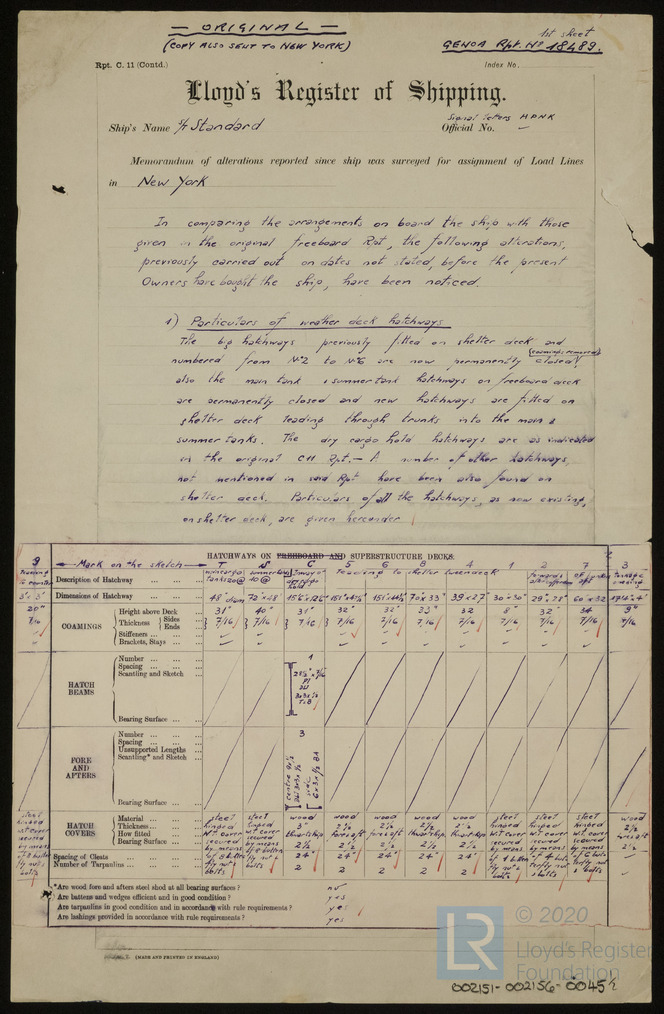 — ORIGINAL —
(COPY ALSO SENT TO NEW YORK)
1st sheet
GENOA Rpt. No 18489.
Rpt. C. 11 (Contd.)
Index No.
Lloyd's Register of Shipping.
Signal letters HPNK
Ship's Name S/T Standard
Official No. —
Memorandum of alterations reported since ship was surveyed for assignment of Load Lines
in New York
In comparing the arrangements on board the ship with those
given in the original freeboard Rpt, the following alterations,
previously carried out on dates not stated, before the present
Owners have bought the ship, have been noticed.
1) Particulars of weather deck hatchways
The big hatchways previously fitted on shelter deck and
numbered from No2 to No6 are now permanently closed (coamings removed)
also the main tank & summer tank hatchways on freeboard deck
are permanently closed and new hatchways are fitted on
shelter deck leading through trunks into the main &
summer tanks. The dry cargo hold hatchways are as indicated
in the original C11 Rpt. — A number of other hatchways,
not mentioned in said Rpt have been also found on
shelter deck. Particulars of all the hatchways, as now existing,
on shelter deck, are given hereunder
HATCHWAYS ON FREEBOARD AND SUPERSTRUCTURE DECKS.
9 Mark on the sketch T S C 5 6 8 4 1 2 7 3
Description of Hatchway
Leading to shelter tweendeck
Dimensions of Hatchway 48" diam 72 x 48" 70 x 33" 39 x 27" 30 x 30" 29" x 28" 60" x 32
COAMINGS
Height above Deck 20" 31" 40" 31" 32" 32" 33" 32 8" 32" 34 9"
Thickness Sides Ends 7/16 7/16 7/16 7/16 7/16 7/16 7/16 7/16 7/16 7/16 7/16 7/16
Stiffeners
Brackets, Stays
HATCH BEAMS
Number 1
Spacing
Scantling and Sketch
Bearing Surface
FORE AND AFTERS
Number 3
Spacing
Unsupported Lengths
Scantling* and Sketch
Bearing Surface
HATCH COVERS
Material steel steel wood wood wood wood wood steel steel steel wood
Thickness hinged hinged 3" 2½ 2½ 2½ 2½ hinged hinged hinged 2½
How fitted
Bearing Surface
Spacing of Cleats 24" 24" 24" 24" 24"
Number of Tarpaulins 2 2 2 2 2
*Are wood fore and afters steel shod at all bearing surfaces? no
Are battens and wedges efficient and in good condition? yes
Are tarpaulins in good condition and in accordance with rule requirements? yes
Are lashings provided in accordance with rule requirements? yes
(MADE AND PRINTED IN ENGLAND)
LR
© 2020
Lloyd's Register
Foundation
002151-002156-0045½